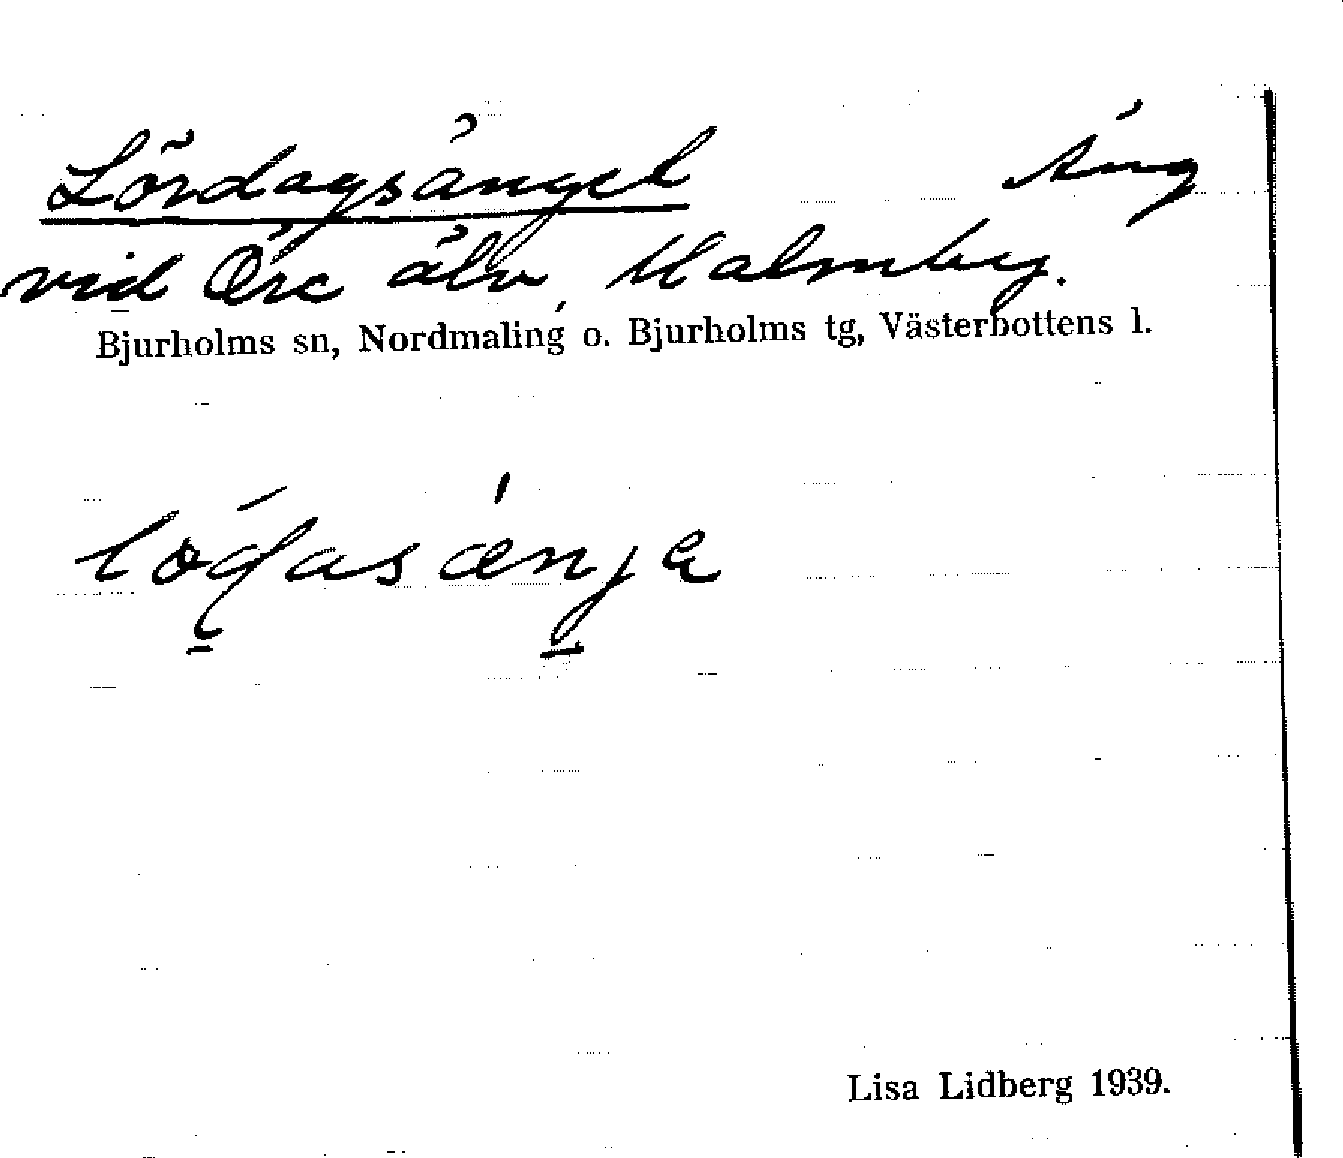 Lördagsängel Äng
vid Öre älv, Malmby.
Bjurholms sn, Nordmaling o. Bjurholms tg, Västerbottens l.
Lisa Lidberg 1939.